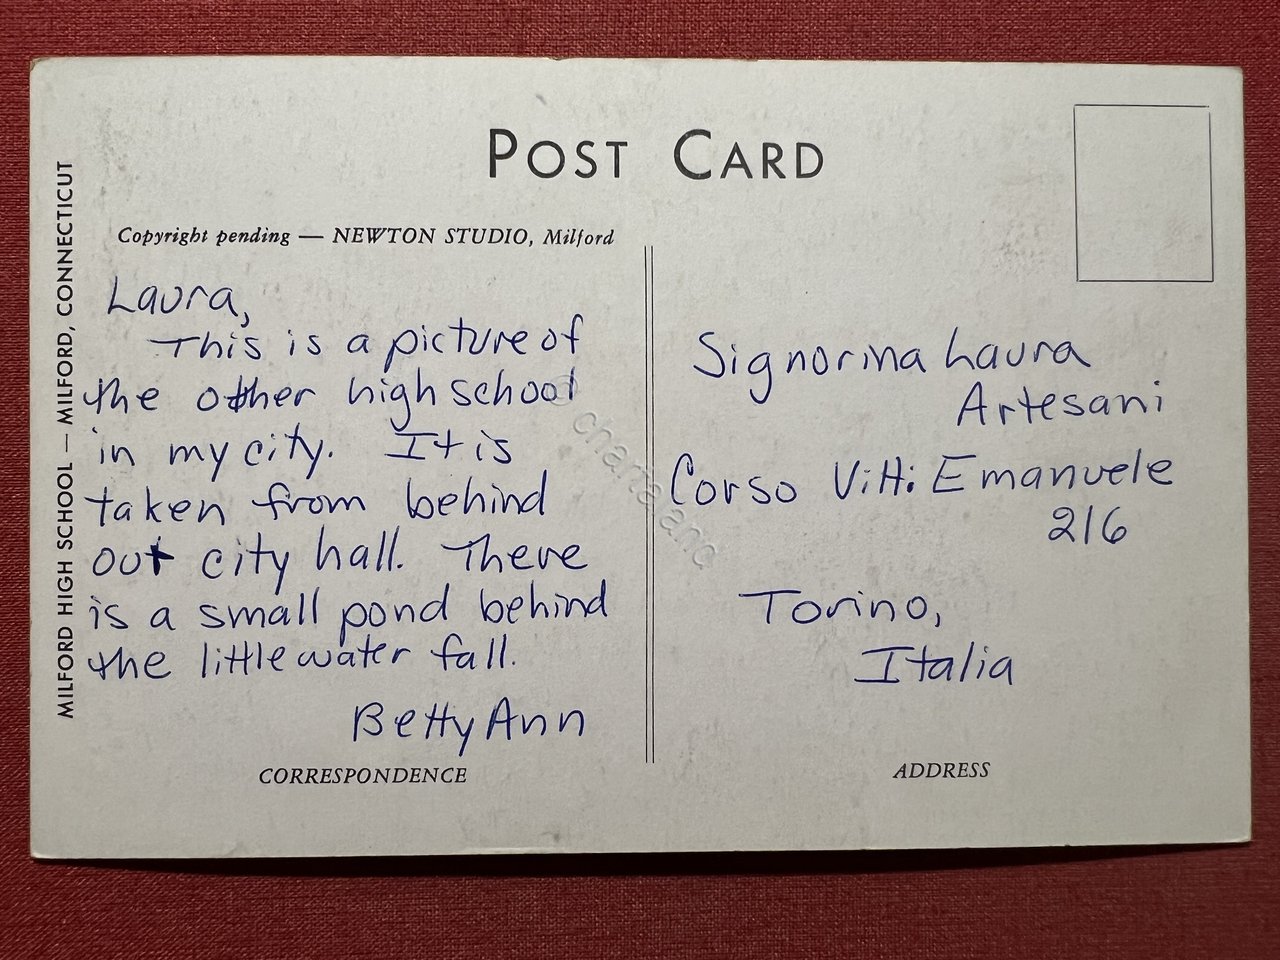 POST CARD
Copyright pending — NEWTON STUDIO, Milford
MILFORD HIGH SCHOOL — MILFORD, CONNECTICUT
Laura,
This is a picture of
the other high school
in my city. It is
taken from behind
out city hall. There
is a small pond behind
the little water fall.
Betty Ann
CORRESPONDENCE
Signorina Laura
Artesani
Corso Vitt. Emanuele
216
Torino,
Italia
ADDRESS